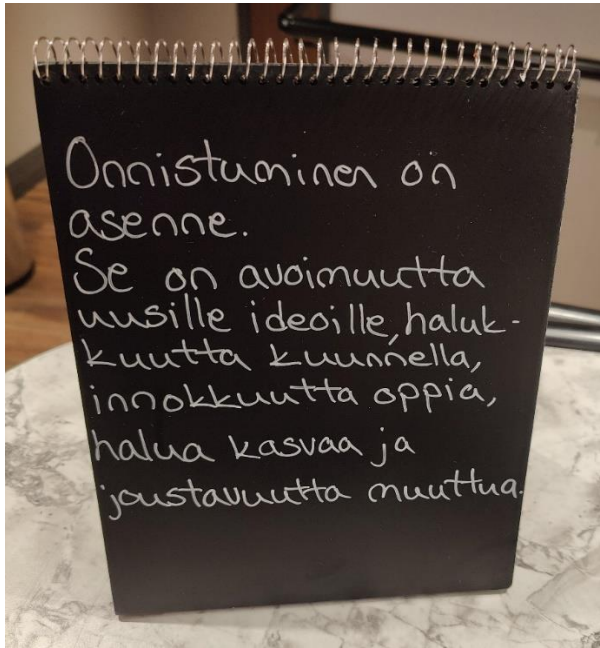 Onnistuminen on
asenne.
Se on avoimuutta
uusille ideoille, haluk-
kuutta kuunnella,
innokkuutta oppia,
halua kasvaa ja
joustavuutta muuttua.